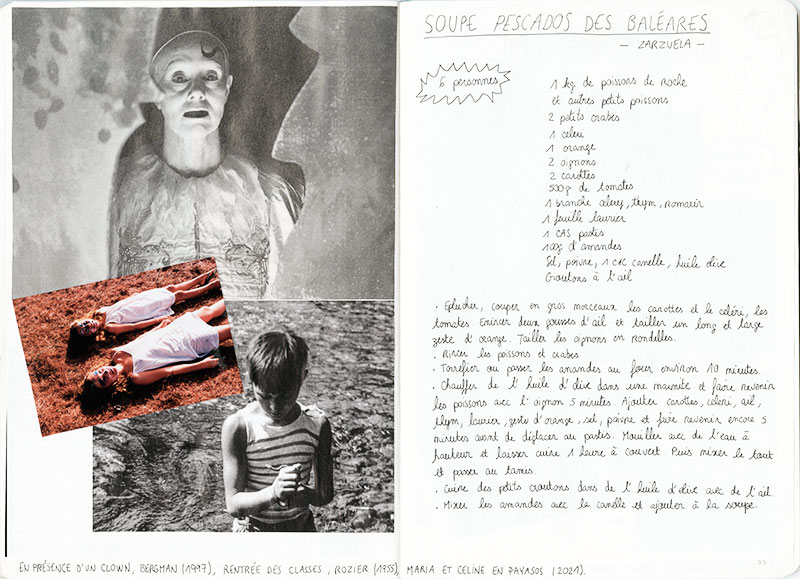 SOUPE PESCADOS DES BALÉARES
- ZARZUELA -
6 personnes
1 kg de poissons de roche
et autres petits poissons
2 petits crabes
1 céleri
1 orange
2 oignons
2 carottes
500g de tomates
1 branche celery, thym, romarin
1 feuille laurier
1 CAS pastis
100g d'amandes
Sel, poivre, 1 CAC canelle, huile olive
Croutons à l'ail
. Eplucher, couper en gros morceaux les carottes et le céleri, les
tomates. Emincer deux gousses d'ail et tailler un long et large
zeste d'orange. Tailler les oignons en rondelles.
. Rincer les poissons et crabes
. Torréfier ou passer les amandes au four environ 10 minutes.
. Chauffer de l'huile d'olive dans une marmite et faire revenir
les poissons avec l'oignon 5 minutes. Ajouter carottes, celeri, ail,
thym, laurier, zeste d'orange, sel, poivre et faire revenir encore 5
minutes avant de déglacer au pastis. Mouiller avec de l'eau à
hauteur et laisser cuire 1 heure à couvert. Puis mixer le tout
et passer au tamis.
. Cuire des petits croutons dans de l'huile d'olive avec de l'ail
. Mixer les amandes avec la canelle et ajouter à la soupe.
EN PRÉSENCE D'UN CLOWN, BERGMAN (1997), RENTRÉE DES CLASSES, ROZIER (1955), MARIA ET CELINE EN PAYASOS (2021).